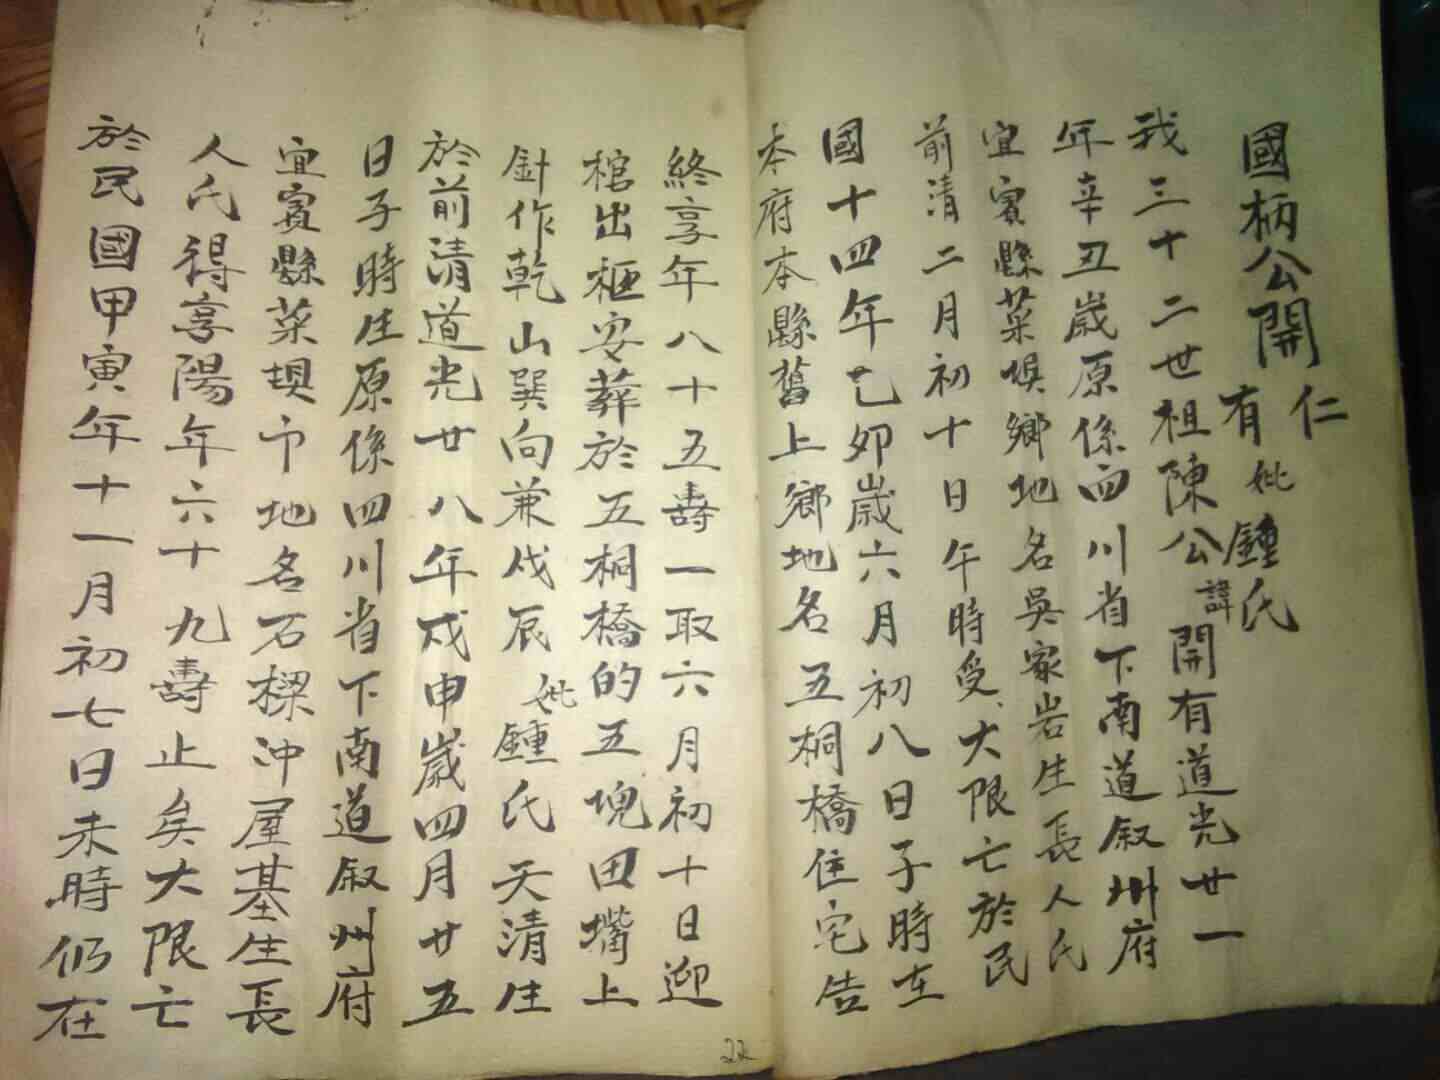 國柄公開仁
有妣鍾氏
我三十二世祖陳公諱開有道光廿一
年辛丑歲原係四川省下南道叙州府
宜賓縣菜埧鄉地名吳家岩生長人氏
前清二月初十日午時受大限亡於民
國十四年乙卯歲六月初八日子時在
本府本縣舊上鄉地名五桐橋住宅告
終享年八十五壽一取六月初十日迎
棺出柩安葬於五桐橋的五塊田嘴上
針作乾山巽向兼戌辰妣鍾氏天清生
於前清道光廿八年戊申歲四月廿五
日子時生原係四川省下南道叙州府
宜賓縣菜埧巿地名石樑沖屋基生長
人氏得享陽年六十九壽止矣大限亡
於民國甲寅年十一月初七日未時仍在
22